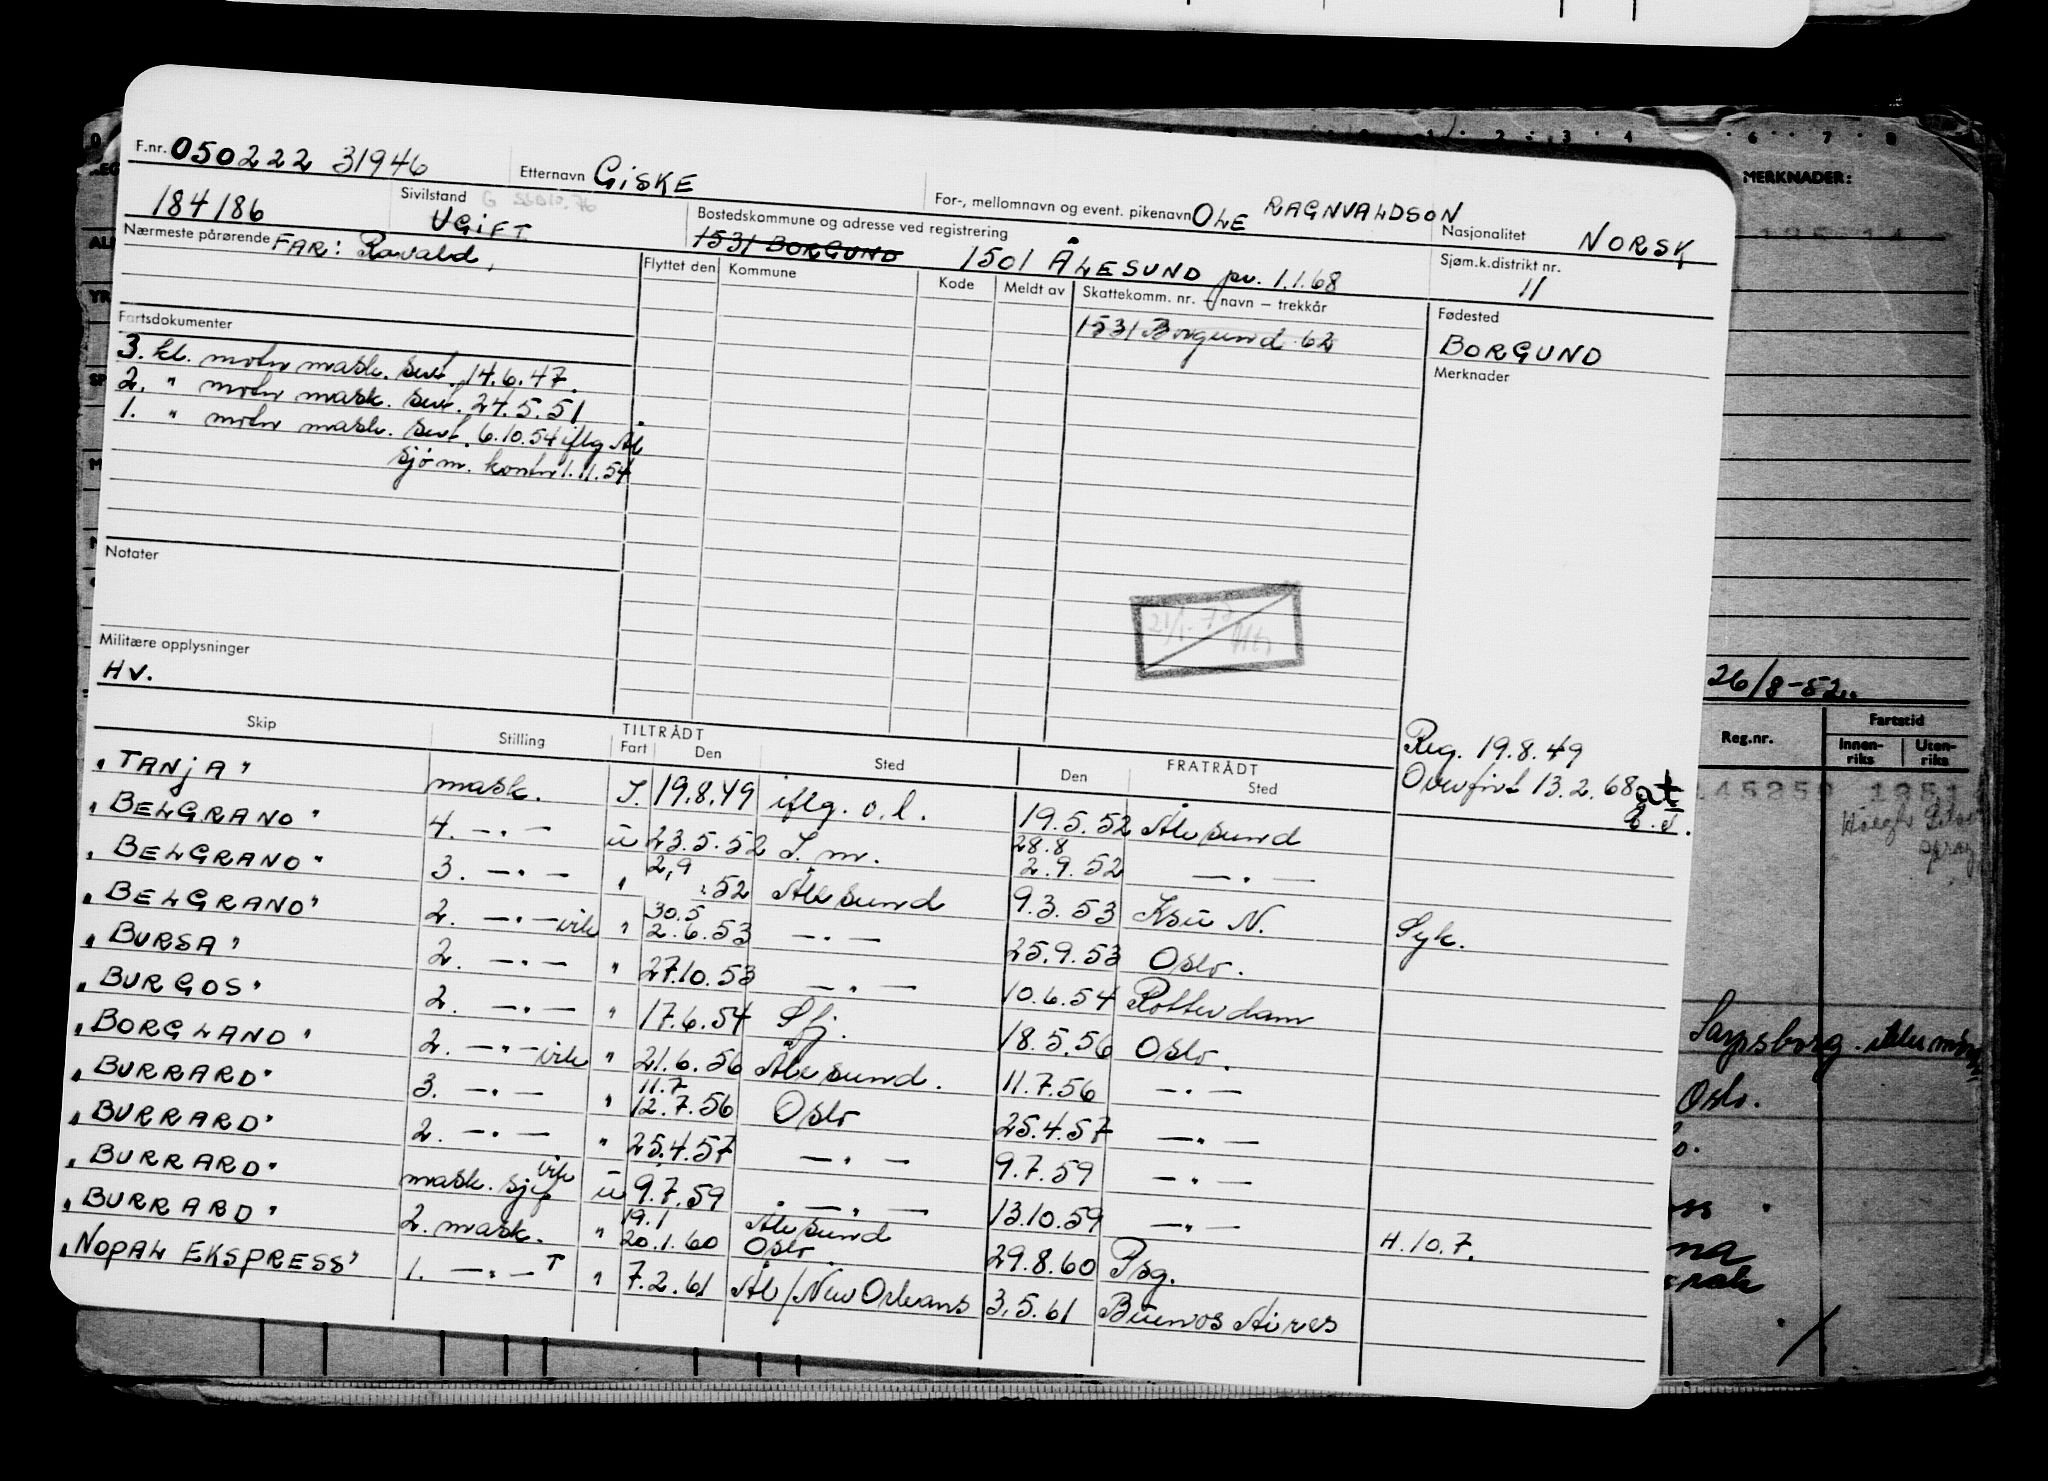 F.nr. 050222 31946 Etternavn GISKE For-, mellomnavn og event. pikenavn OLE RAGNVALDSON Nasjonalitet NORSK
184186 Sivilstand UGIFT Bostedskommune og adresse ved registrering 1531 BORGUND 1501 ÅLESUND pr. 1.1.68 Sjøm.k.distrikt nr. 11
Nærmeste pårørende FAR: Ravald,
Flyttet den Kommune Kode Meldt av Skattekomm. nr. – navn – trekkår Fødested
1531 Borgund 62 BORGUND
Merknader
Fartsdokumenter
3. kl. motor mask. sert. 14.6.47.
2. " motor mask. sert. 24.5.51
1. " motor mask. sert. 6.10.54 iflg Ål
sjøm. kontor 1.11.54
Notater
Militære opplysninger
HV.
Reg. 19.8.49
Overført 13.2.68
Skip Stilling TILTRÅDT Fart Den Sted FRATRÅDT Den Sted
"TANJA" mask. I. 19.8.49 iflg. o.l. 19.5.52 Ålesund
"BELGRANO" 4. —"— u 23.5.52 I. m. 28.8 2.9.52 —"—
"BELGRANO" 3. —"— " 2.9 .52 Ålesund 9.3.53 Ksu N. Syk.
"BELGRANO" 2. —"— vik " 30.5 2.6.53 —"— 25.9.53 Oslo.
"BURSA" 2. —"— " 27.10.53 —"— 10.6.54 Rotterdam
"BURGOS" 2. —"— " 17.6.54 Sfj. 18.5.56 Oslo.
"BORGLAND" 2. —"— vik " 21.6.56 Ålesund. 11.7.56 —"—
"BURRARD" 3. —"— " 11.7 12.7.56 Oslo 25.4.57 —"—
"BURRARD" 2. —"— " 25.4.57 —"— 9.7.59 —"—
"BURRARD" mask. sjef vik u 9.7.59 —"— 13.10.59 —"—
"BURRARD" 2. mask. " 19.1 20.1.60 Ålesund Oslo. 29.8.60 Psg. H. 10.7.
"NOPAL EKSPRESS" 1. —"— T " 7.2.61 Ål/New Orleans 3.5.61 Buenos Aires
MERKNADER:
26/8-52
Reg.nr. Fartstid
Innen-riks Uten-riks
Sarpsborg.
Oslo.